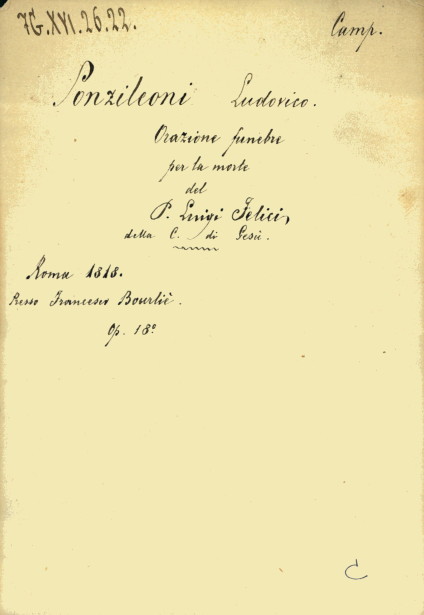 7G.XVI.26.22.
Camp.
Ponzileoni Ludovico.
Orazione funebre
per la morte
del
P. Luigi Felici,
della C. di Gesù.
Roma 1818.
Presso Francesco Bourliè.
Op. 18°
C